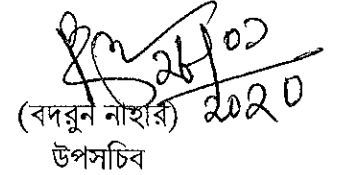 ২৮/০১
২০২০
(বদরুন নাহার)
উপসচিব